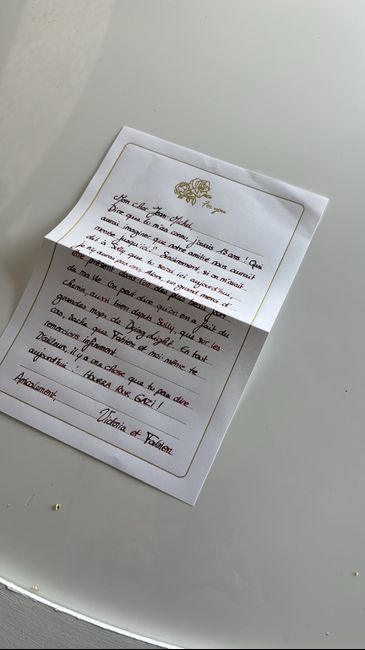 For you
Mon Cher Jean Michel,
Dire que tu m'as connu j'avais 13 ans ! Qui
aurait imaginer que notre amitié nous aurait
mener jusqu'ici ? Sincèrement, si on m'avait
dit à Sully que tu serais ici aujourd'hui,
je n'y aurais pas cru. Alors, un grand merci d'
être présent dans l'un des plus beau jour
de ma vie. On peut dire qu'on en a fait du
chemin, aussi bien depuis Sully, que sur les
grandes maps de Dying Light. En tout
cas, sache que Fabien et moi-même te
remercions infiniment.
D'ailleurs, il y a une chose que tu peux dire
aujourd'hui : HOURRA POUR GAZI !
Amicalement,
Victoria et Fabien